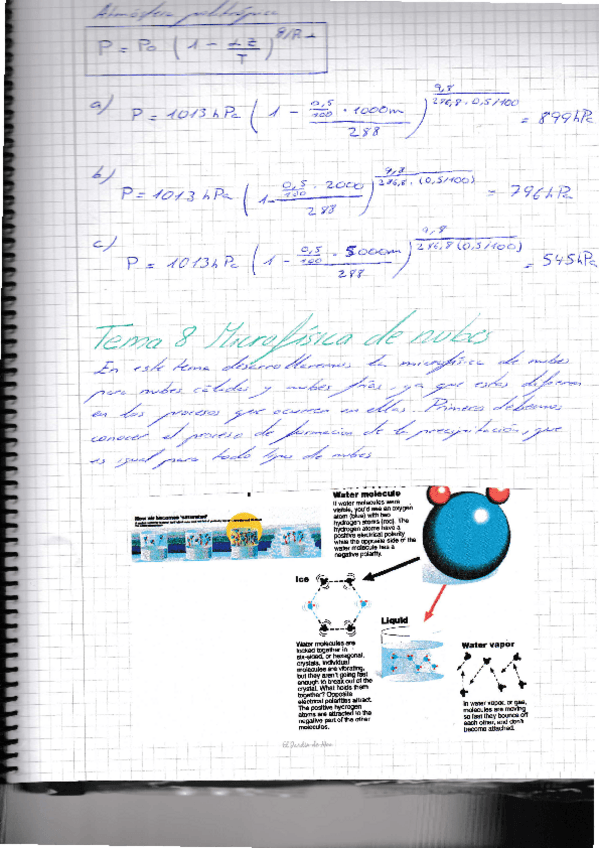 Atmósfera politrópica
P = Po (1 - αz/T)^g/Rα
a) P = 1013 hPa (1 - 0,5/100 · 1000m / 288)^9,8/286,8 · 0,5/100 = 899 hPa
b) P = 1013 hPa (1 - 0,5/100 · 2000 / 288)^9,8/286,8 · (0,5/100) = 796 hPa
c) P = 1013 hPa (1 - 0,5/100 · 5000m / 288)^9,8/286,8 (0,5/100) = 545 hPa
Tema 8 Microfísica de nubes
En este tema desarrollaremos la microfísica de nubes
para nubes cálidas y nubes frías, ya que estas difieren
en los procesos que ocurren en ellas. Primero debemos
conocer el proceso de formación de la precipitación, que
es igual para todo tipo de nubes
How air becomes 'saturated'
Water molecule
If water molecules were
visible, you'd see an oxygen
atom (blue) with two
hydrogen atoms (red). The
hydrogen atoms have a
positive electrical polarity
while the opposite side of the
water molecule has a
negative polarity.
Ice
Water molecules are
locked together in
six-sided, or hexagonal,
crystals. Individual
molecules are vibrating,
but they aren't going fast
enough to break out of the
crystal. What holds them
together? Opposite
electrical polarities attract.
The positive hydrogen
atoms are attracted to the
negative part of the other
molecules.
Liquid
Water vapor
In water vapor, or gas,
molecules are moving
so fast they bounce off
each other, and don't
become attached.